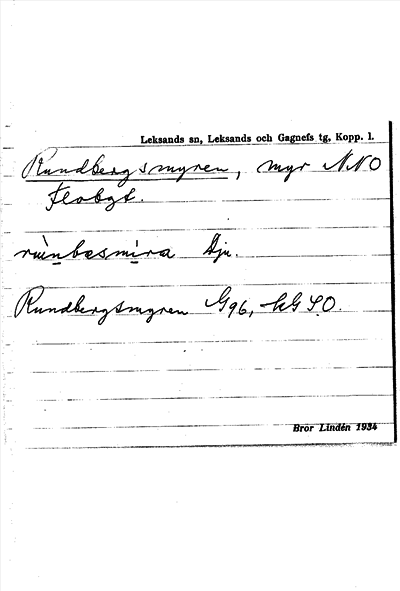 Leksands sn, Leksands och Gagnefs tg, Kopp. l.
Rundbergsmyren, myr NNO
Flobgt.
rùnbæsmìra Dju.
Rundbergsmyren G96, kG S.O.
Bror Lindén 1934